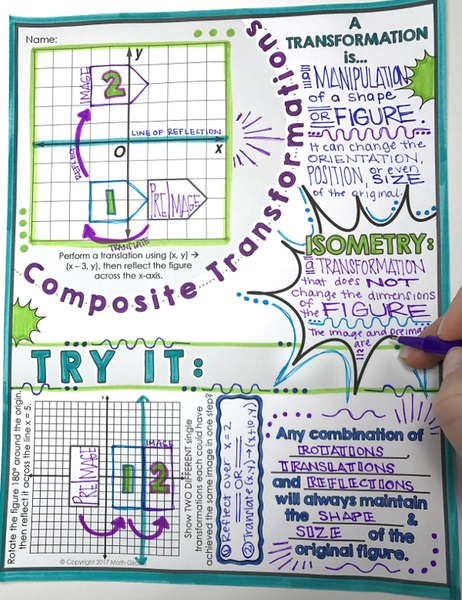 Name:
y
x
O
IMAGE
2
REFLECT
LINE OF REFLECTION
1
PREIMAGE
TRANSLATE
Perform a translation using (x, y) →
(x – 3, y), then reflect the figure
across the x-axis.
Composite Transformations
A
TRANSFORMATION
is...
a MANIPULATION
of a shape
OR FIGURE.
It can change the
ORIENTATION,
POSITION, or even
SIZE
of the original.
ISOMETRY:
a TRANSFORMATION
that does NOT
change the dimensions
of the FIGURE
The image and preimage
are
TRY IT:
Rotate the figure 180° around the origin,
then reflect it across the line x = 5.
PREIMAGE
1
IMAGE
2
© Copyright 2017 Math Giraffe
Show TWO DIFFERENT single
transformations each could have
achieved the same image in one step?
① Reflect over x = 2
OR
② Translate (x,y) → (x+10, y)
Any combination of
ROTATIONS
TRANSLATIONS
and REFLECTIONS
will always maintain
the SHAPE &
SIZE of the
original figure.